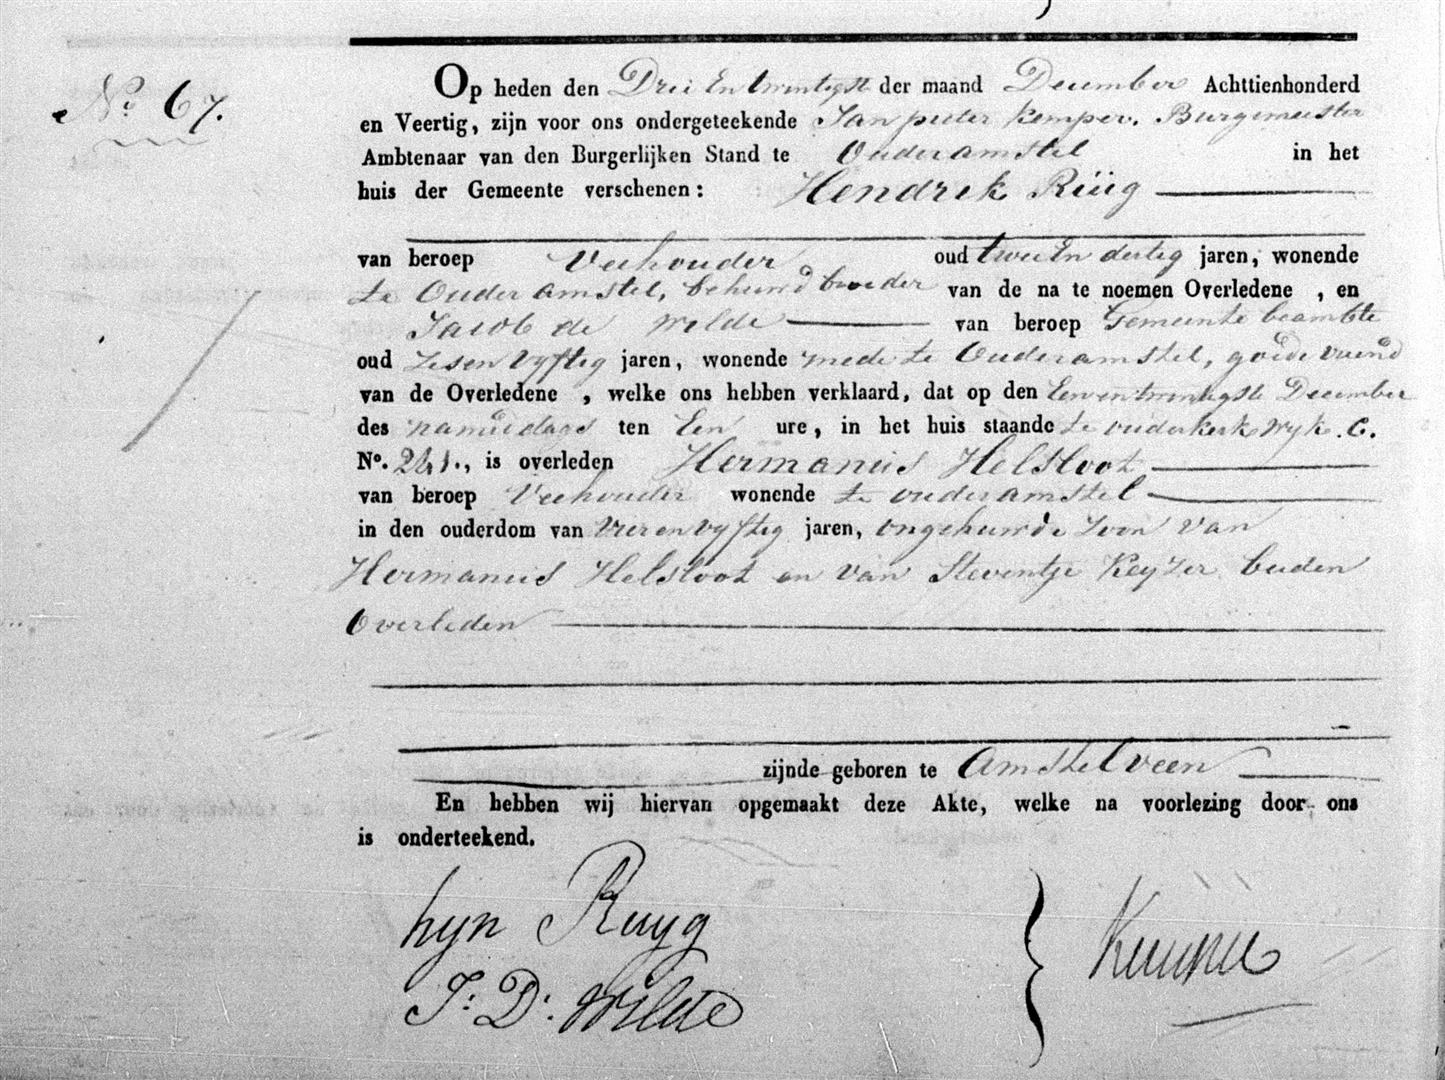 No. 67.
Op heden den Drie En twintigst der maand December Achttienhonderd
en Veertig, zijn voor ons ondergeteekende Jan pieter Kemper. Burgemeester
Ambtenaar van den Burgerlijken Stand te Ouderamstel in het
huis der Gemeente verschenen: Hendrik Rüig
van beroep Veehouder oud twee En dertig jaren, wonende
te Ouder amstel, behuwd broeder van de na te noemen Overledene , en
Jacob de Wilde van beroep Gemeente beambte
oud Zesen Vyftig jaren, wonende mede te Ouderamstel, goede vriend
van de Overledene , welke ons hebben verklaard, dat op den Eenentwintigste December
des namiddags ten Een ure, in het huis staande te ouderkerk wyk. C.
No. 241., is overleden Hermanus Helsloot
van beroep Veehouder wonende te ouderamstel
in den ouderdom van Vier en vyftig jaren, ongehuwde Zoon van
Hermanus Helsloot en van Steventje Keyzer beiden
Overleden
zijnde geboren te Amstelveen
En hebben wij hiervan opgemaakt deze Akte, welke na voorlezing door ons
is onderteekend.
hyn Ruyg
J: D: Wilde
Kemper